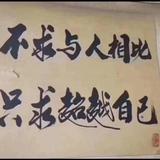 不求与人相比
只求超越自己